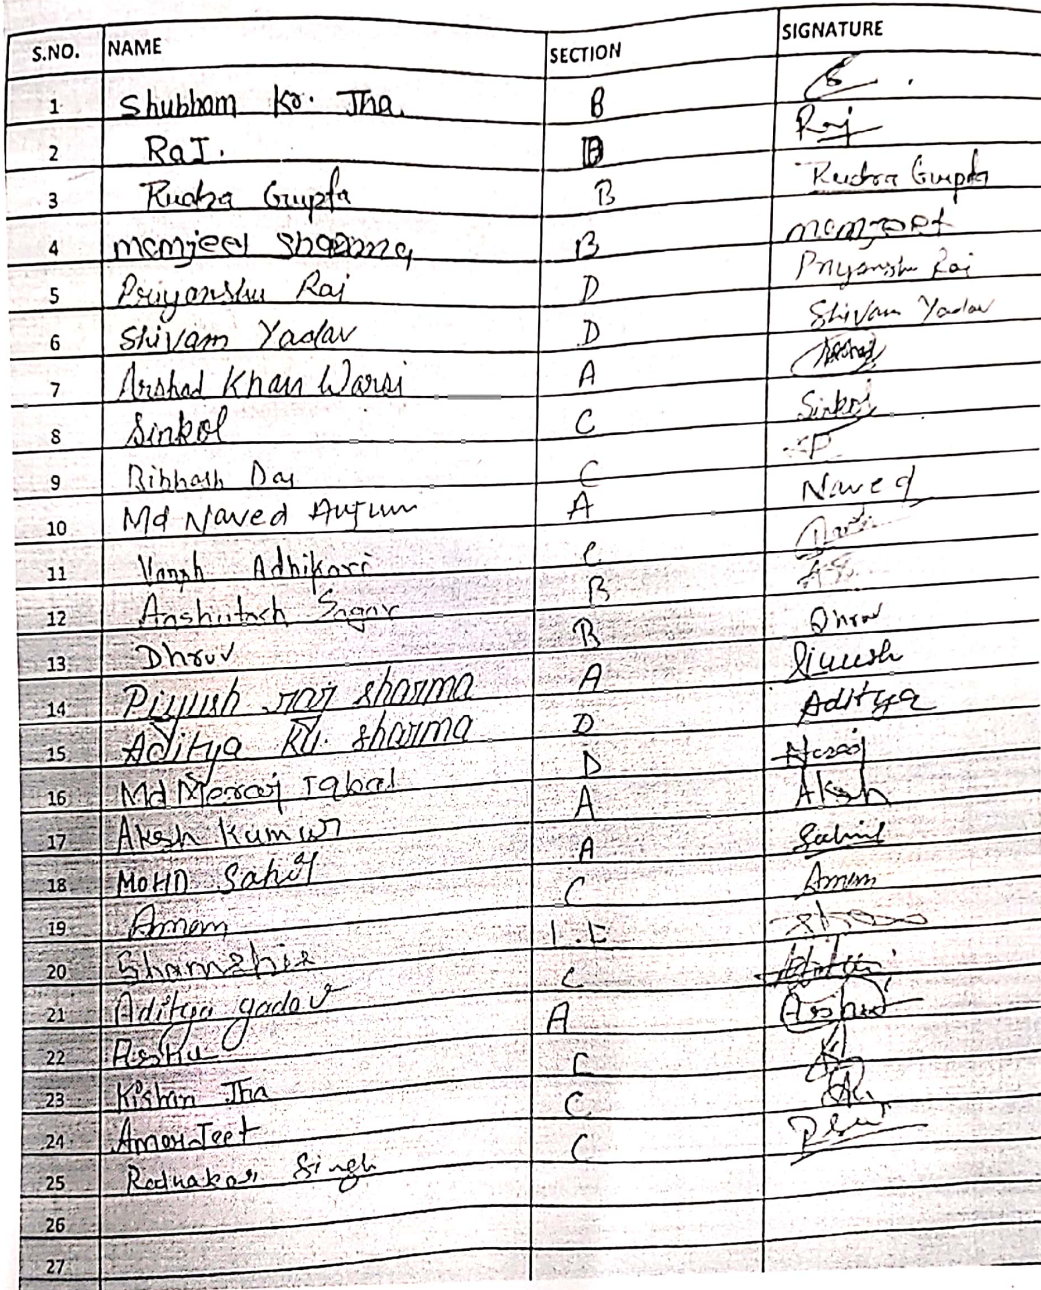 S.NO. NAME SECTION SIGNATURE
1 Shubham Kr. Jha. B
2 RaJ. B Raj
3 Rudra Gupta B Rudra Gupta
4 manjeet sharma B manjeet
5 Priyanshu Raj D Priyanshu Raj
6 Shivam Yadav D Shivam Yadav
7 Arshad Khan Warsi A Arshad
8 Sinkol C Sinkol
9 Bibhash Das C
10 Md Naved Anjum A Naved
11 Vansh Adhikari C
12 Anshutosh Sagar B
13 Dhruv B Dhruv
14 Piyush raj sharma A Piyush
15 Aditya Ku. sharma D Aditya
16 Md Meraj Iqbal D Meraj
17 Aksh Kumar A Aksh
18 MOHD Sahil A Sahil
19 Amam C Amam
20 I.E
21 Aditya yadav C
22 Arshu A
23 Kishan Jha C
24 AmarJeet C
25 Radnakar Singh C
26
27